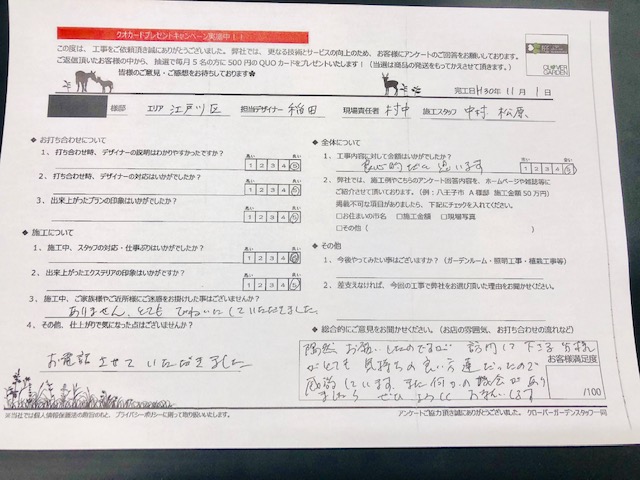 クオカードプレゼントキャンペーン実施中！！
この度は、工事をご依頼頂き誠にありがとうございました。弊社では、更なる技術とサービスの向上のため、お客様にアンケートのご回答をお願いしております。
ご返信頂いたお客様の中から、抽選で毎月5名の方に500円のQUOカードをプレゼントいたします！（当選は商品の発送をもってかえさせて頂きます。）
皆様のご意見・ご感想をお待ちしております
CLOVER GARDEN
完工日H30年11月1日
様邸 エリア 江戸川区 担当デザイナー 稲田 現場責任者 村中 施工スタッフ 中村 松原
◆ お打ち合わせについて
1、打ち合わせ時、デザイナーの説明はわかりやすかったですか？
悪い 良い
1 2 3 4 5
2、打ち合わせ時、デザイナーの対応はいかがでしたか？
悪い 良い
1 2 3 4 5
3、出来上がったプランの印象はいかがでしたか？
悪い 良い
1 2 3 4 5
◆ 施工について
1、施工中、スタッフの対応・仕事ぶりはいかがでしたか？
悪い 良い
1 2 3 4 5
2、出来上がったエクステリアの印象はいかがですか？
悪い 良い
1 2 3 4 5
3、施工中、ご家族様やご近所様にご迷惑をお掛けした事はございませんか？
ありません、とても ていねいにしていただきました
4、その他、仕上がりで気になった点はございませんか？
お電話させていただきました
◆ 全体について
1、工事内容に対して金額はいかがでしたか？
高い 良い
1 2 3 4 5
良心的だと思います
2、弊社では、施工例やこちらのアンケート回答内容を、ホームページや雑誌等に
ご紹介させて頂いております。（例：八王子市 A様邸 施工金額50万円）
掲載不可な項目がありましたら、下記にチェックを入れてください。
□お住まいの市名 □施工金額 □現場写真
□その他（ ）
◆ その他
1、今後やってみたい事はございますか？（ガーデンルーム・照明工事・植栽工事等）
2、差支えなければ、今回の工事で弊社をお選び頂いた理由をお聞かせください。
◆ 総合的にご意見をお聞かせください。（お店の雰囲気、お打ち合わせの流れなど）
偶然 お願いしたのですが 訪問して下さる皆様
がとても 気持ちの良い方達だったので
感謝しています。また何かの機会があり
ましたら ぜひ よろしく お願いします
お客様満足度
/100
※当社では個人情報保護法の趣旨のもと、プライバシーポリシーに則って取り扱いいたします。
アンケートご協力頂き誠にありがとうございました。クローバーガーデンスタッフ一同